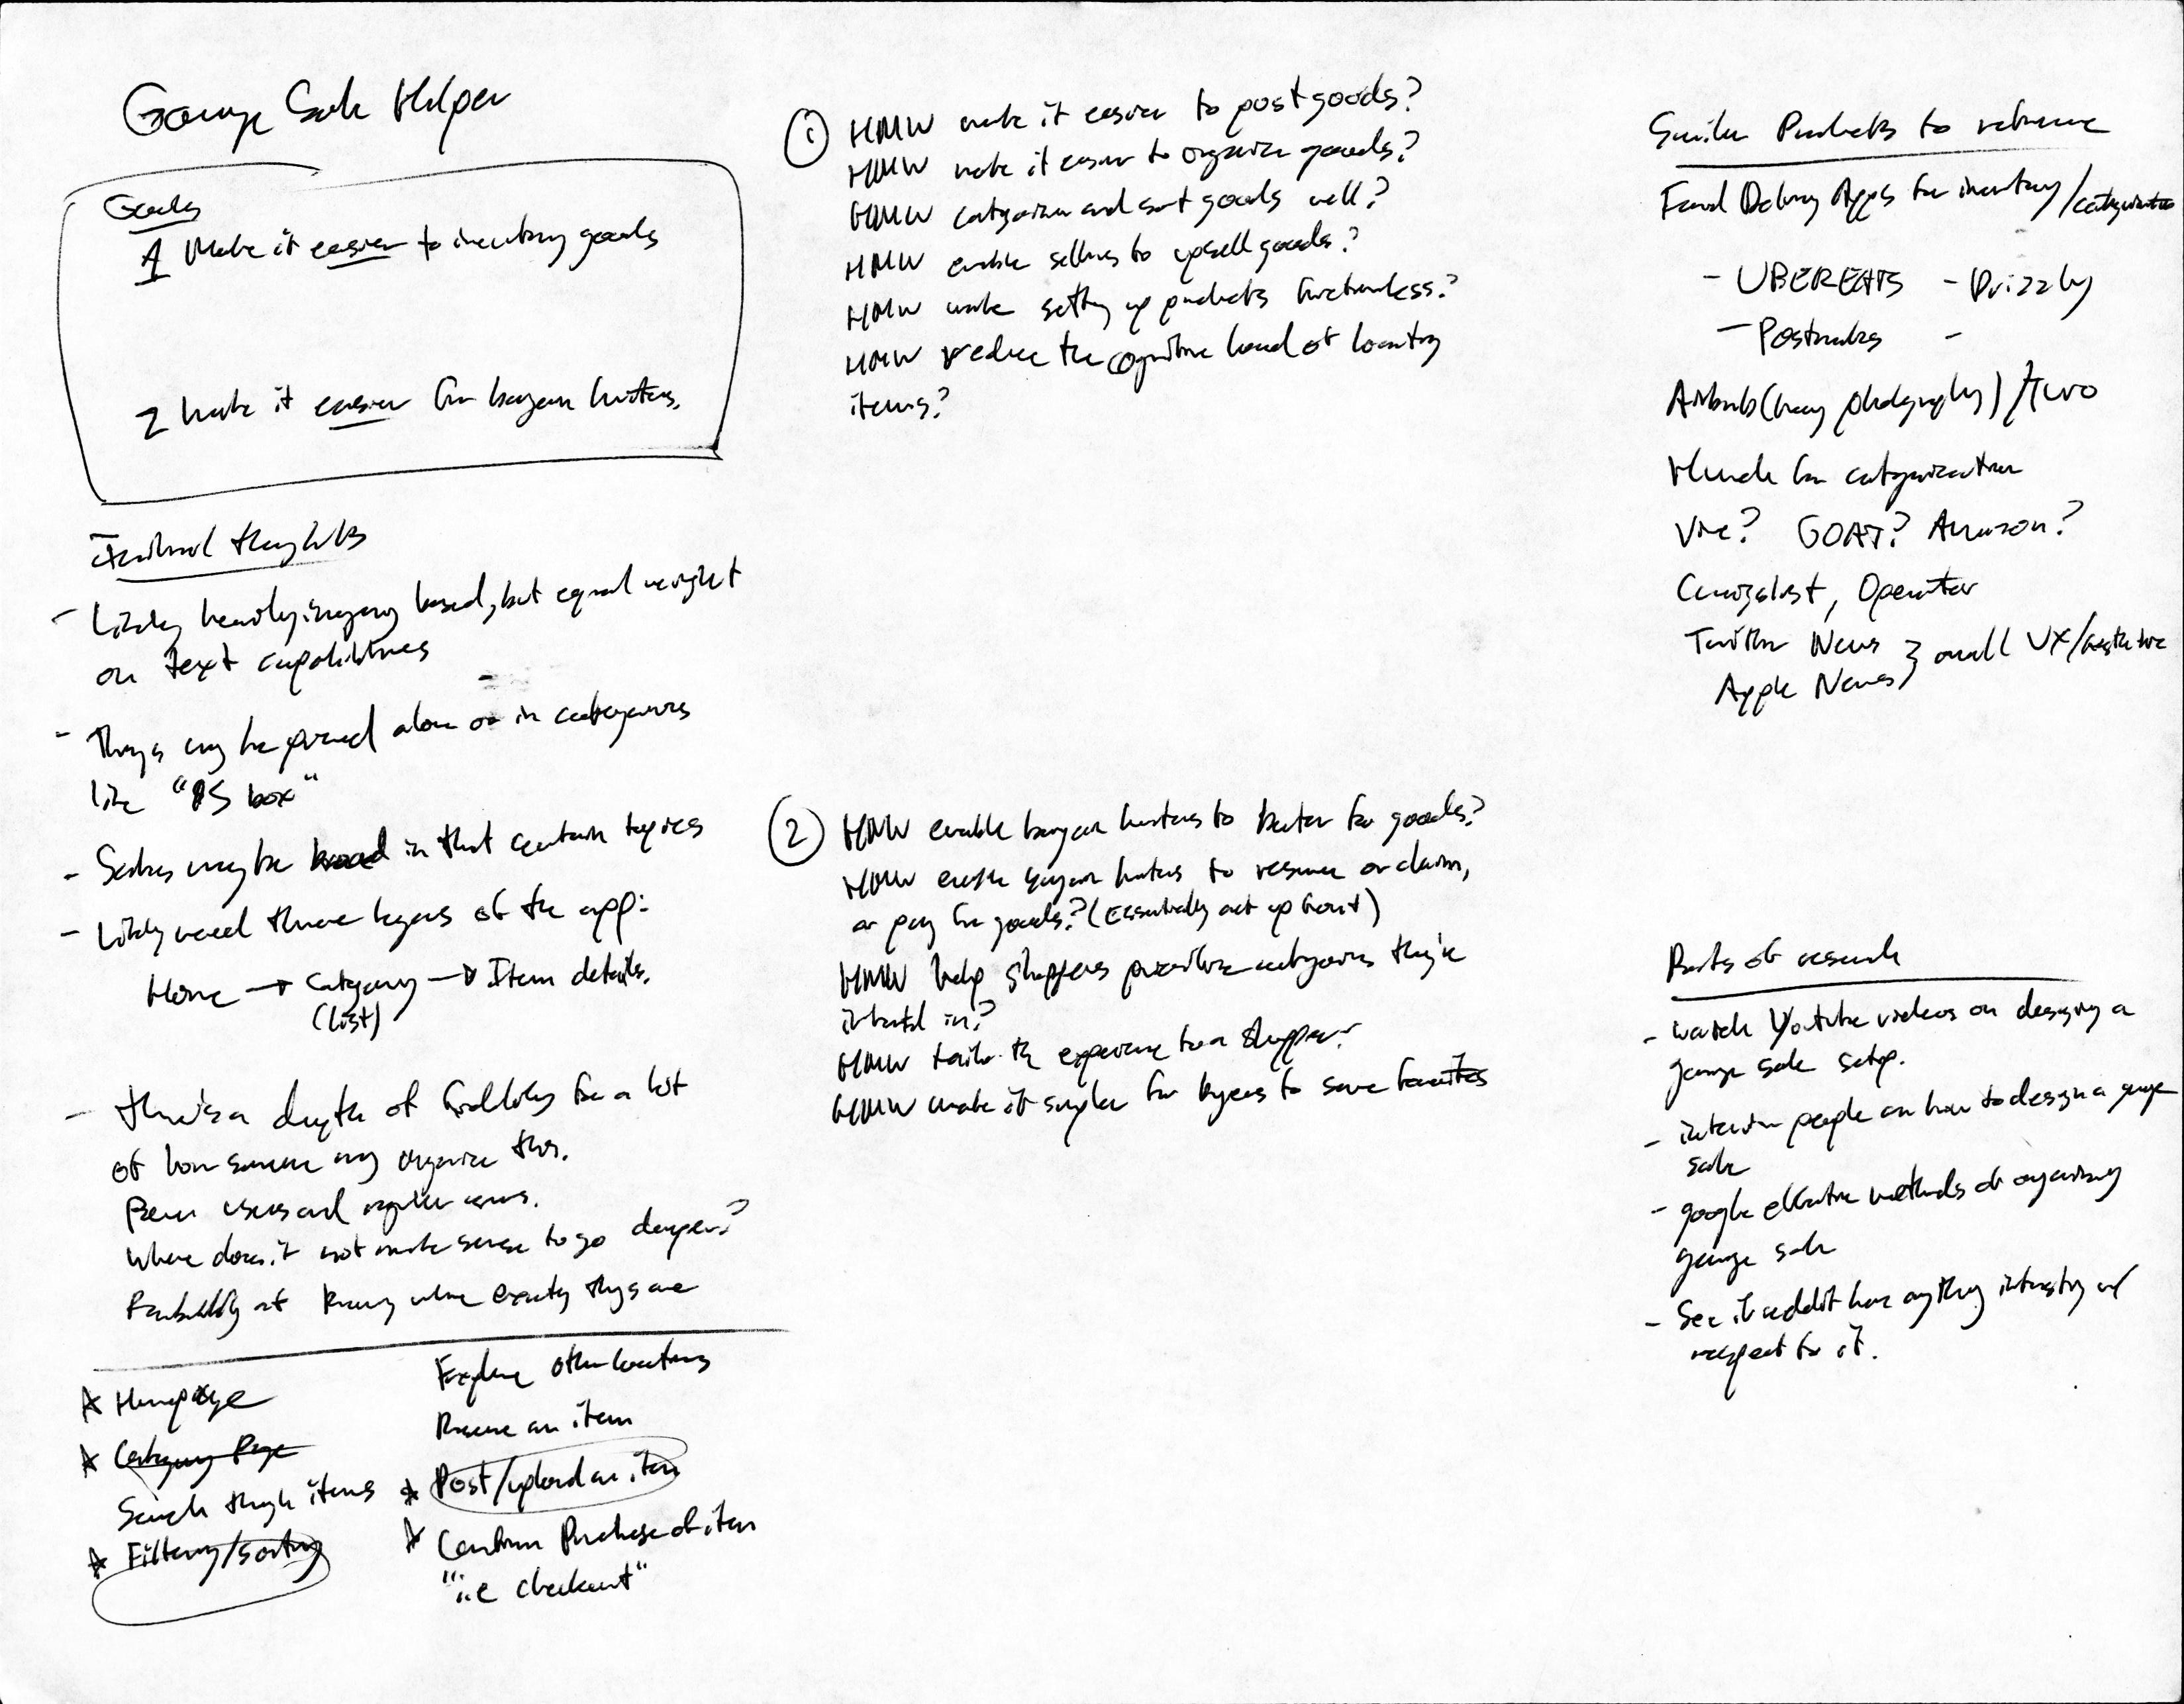 Garage Sale Helper
Goals
1 Make it easier to inventory goods
2 Make it easier for bargain hunters.
Initial thoughts
- Likely heavily imagery based, but equal weight
on text capabilities
- Things may be priced alone or in categories
like "$5 box"
- Sales may be broad in that contain topics
- Likely need three layers of the app:
Home → Category → Item details.
(list)
- There's a depth of for a lot
of how someone may organize this.
Power users and regular users.
Where does it not make sense to go deeper?
Probably at knowing where exactly things are
☆ Homepage
☆ Category Page
Search through items
☆ Filtering/Sorting
Explore other locations
Reserve an item
☆ Post/upload an item
☆ Confirm Purchase of item
"i.e checkout"
① HMW make it easier to post goods?
HMW make it easier to organize goods?
HMW categorize and sort goods well?
HMW enable sellers to upsell goods?
HMW make setting up products frictionless?
HMW reduce the cognitive load of locating
items?
② HMW enable bargain hunters to barter for goods?
HMW enable bargain hunters to reserve or claim,
or pay for goods? (Essentially act up front)
HMW help shoppers prioritize categories they're
interested in?
HMW tailor the experience to a shopper?
HMW make it simpler for buyers to save favorites
Similar Products to reference
Food Delivery Apps for inventory/categorization
- UBEREATS - Drizzly
- Postmates -
Airbnb (heavy photography) / Turo
for categorization
GOAT? Amazon?
Craigslist, Operator
Twitter News } overall UX/aesthetic
Apple News
Parts of research
- watch Youtube videos on designing a
garage sale setup.
- interview people on how to design a garage
sale
- google effective methods of organizing
garage sale
- See if reddit has anything interesting w/
respect to it.